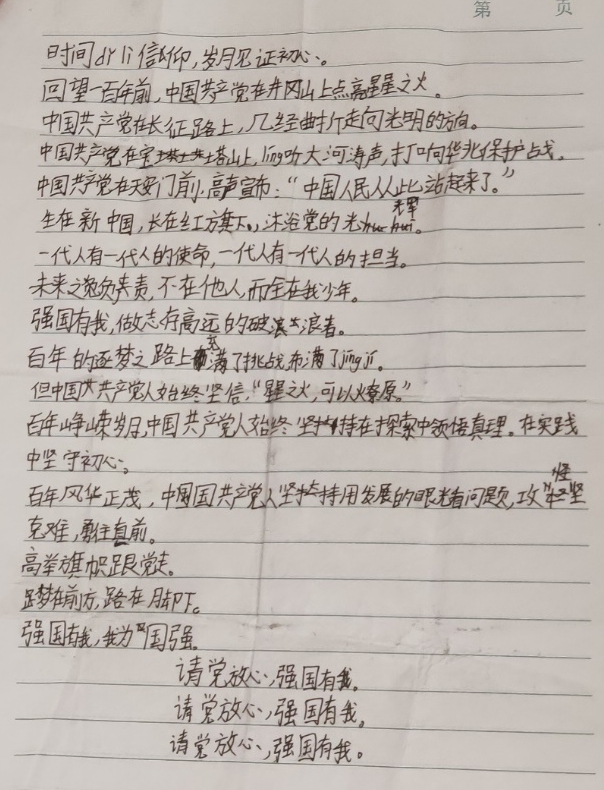 第 页
时间dì lì信仰,岁月见证初心。
回望一百年前,中国共产党在井冈山上点亮星星之火。
中国共产党在长征路上,几经曲折走向光明的方向。
中国共产党在宝塔山上,líng听大河涛声,打响华北保护战。
中国共产党在天安门前,高声宣布:“中国人民从此站起来了。”
生在新中国,长在红方旗下,沐浴党的光辉。
一代人有一代人的使命,一代人有一代人的担当。
未来之责,不在他人,而全在我少年。
强国有我,做志存高远的破浪者。
百年的逐梦之路上充满了挑战,布满了jīng jí。
但中国共产党人始终坚信,“星之火,可以燎原。”
百年峥嵘岁月,中国共产党人始终坚持在探索中领悟真理。在实践
中坚守初心。
百年风华正茂,中国共产党人坚持用发展的眼光看问题,攻坚
克难,勇往直前。
高举旗帜跟党走。
梦在前方,路在脚下。
强国有我,我为国强。
请党放心,强国有我。
请党放心,强国有我。
请党放心,强国有我。